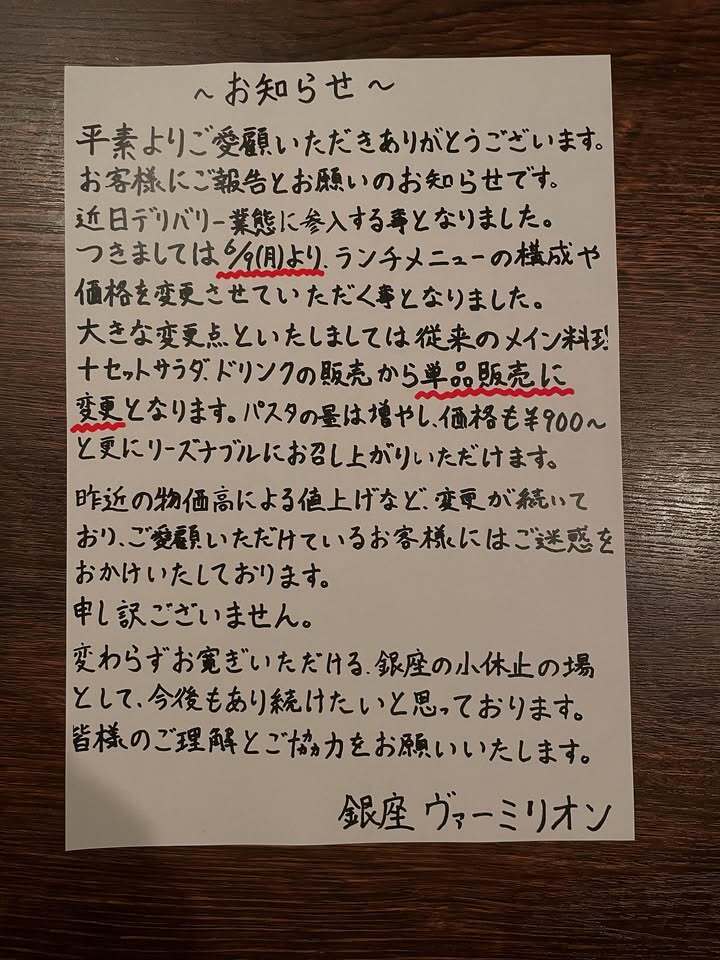 ～お知らせ～
平素よりご愛顧いただきありがとうございます。
お客様にご報告とお願いのお知らせです。
近日デリバリー業態に参入する事となりました。
つきましては6/9(月)より、ランチメニューの構成や
価格を変更させていただく事となりました。
大きな変更点といたしましては従来のメイン料理
+セットサラダ、ドリンクの販売から単品販売に
変更となります。パスタの量は増やし、価格も¥900～
と更にリーズナブルにお召し上がりいただけます。
昨近の物価高による値上げなど、変更が続いて
おり、ご愛顧いただけているお客様にはご迷惑を
おかけいたしております。
申し訳ございません。
変わらずお寛ぎいただける、銀座の小休止の場
として、今後もあり続けたいと思っております。
皆様のご理解とご協力をお願いいたします。
銀座 ヴァーミリオン